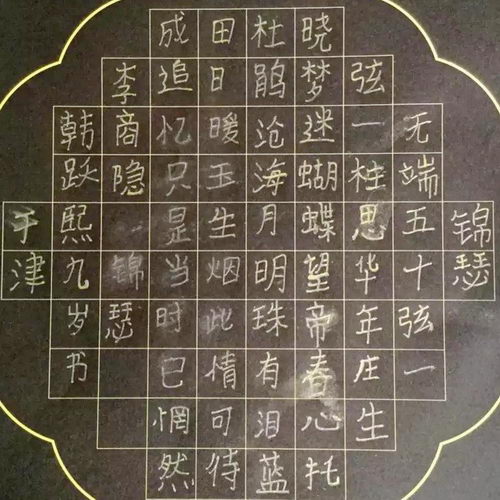 锦瑟
无端五十弦一
弦一柱思华年庄生
晓梦迷蝴蝶望帝春心托
杜鹃沧海月明珠有泪蓝
田日暖玉生烟此情可待
成追忆只是当时已惘然
李商隐 锦瑟
韩跃熙九岁书
于津